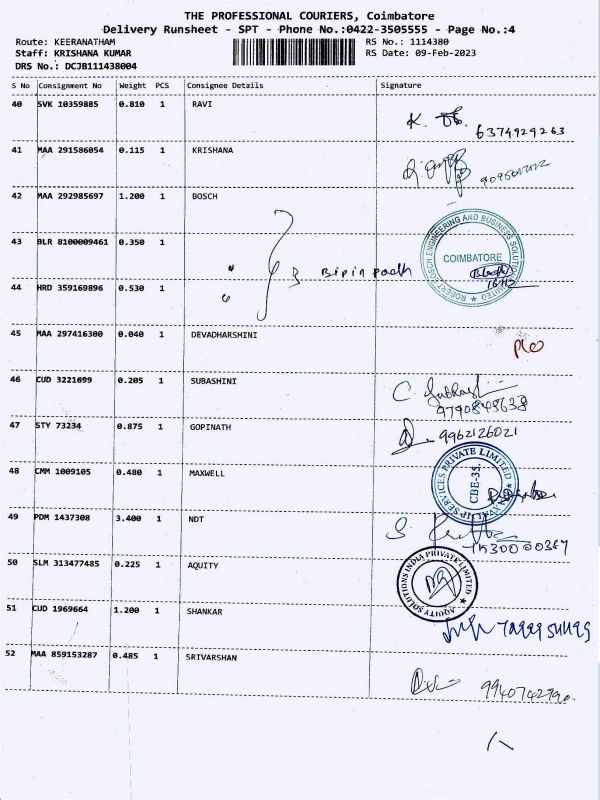 THE PROFESSIONAL COURIERS, Coimbatore
Delivery Runsheet - SPT - Phone No.:0422-3505555 - Page No.:4
Route: KEERANATHAM RS No.: 1114380
Staff: KRISHANA KUMAR RS Date: 09-Feb-2023
DRS No.: DCJB111438004
S No Consignment No Weight PCS Consignee Details Signature
40 SVK 10359885 0.810 1 RAVI
K. 6374929263
41 MAA 291586054 0.115 1 KRISHANA
42 MAA 292985697 1.200 1 BOSCH
ROBERT BOSCH ENGINEERING AND BUSINESS SOLUTIONS LIMITED
COIMBATORE
43 BLR 8100009461 0.350 1
3 Bipin
44 HRD 359169896 0.530 1
45 MAA 297416300 0.040 1 DEVADHARSHINI
46 CUD 3221699 0.205 1 SUBASHINI
C
9790845638
47 STY 73234 0.875 1 GOPINATH
9962126021
48 CMM 1009105 0.480 1 MAXWELL
SERVICES PRIVATE LIMITED
CBE-35.
49 PDM 1437308 3.400 1 NDT
50 SLM 313477485 0.225 1 AQUITY
AQUITY SOLUTIONS INDIA PRIVATE LIMITED
51 CUD 1969664 1.200 1 SHANKAR
52 MAA 859153287 0.485 1 SRIVARSHAN
9940742990.